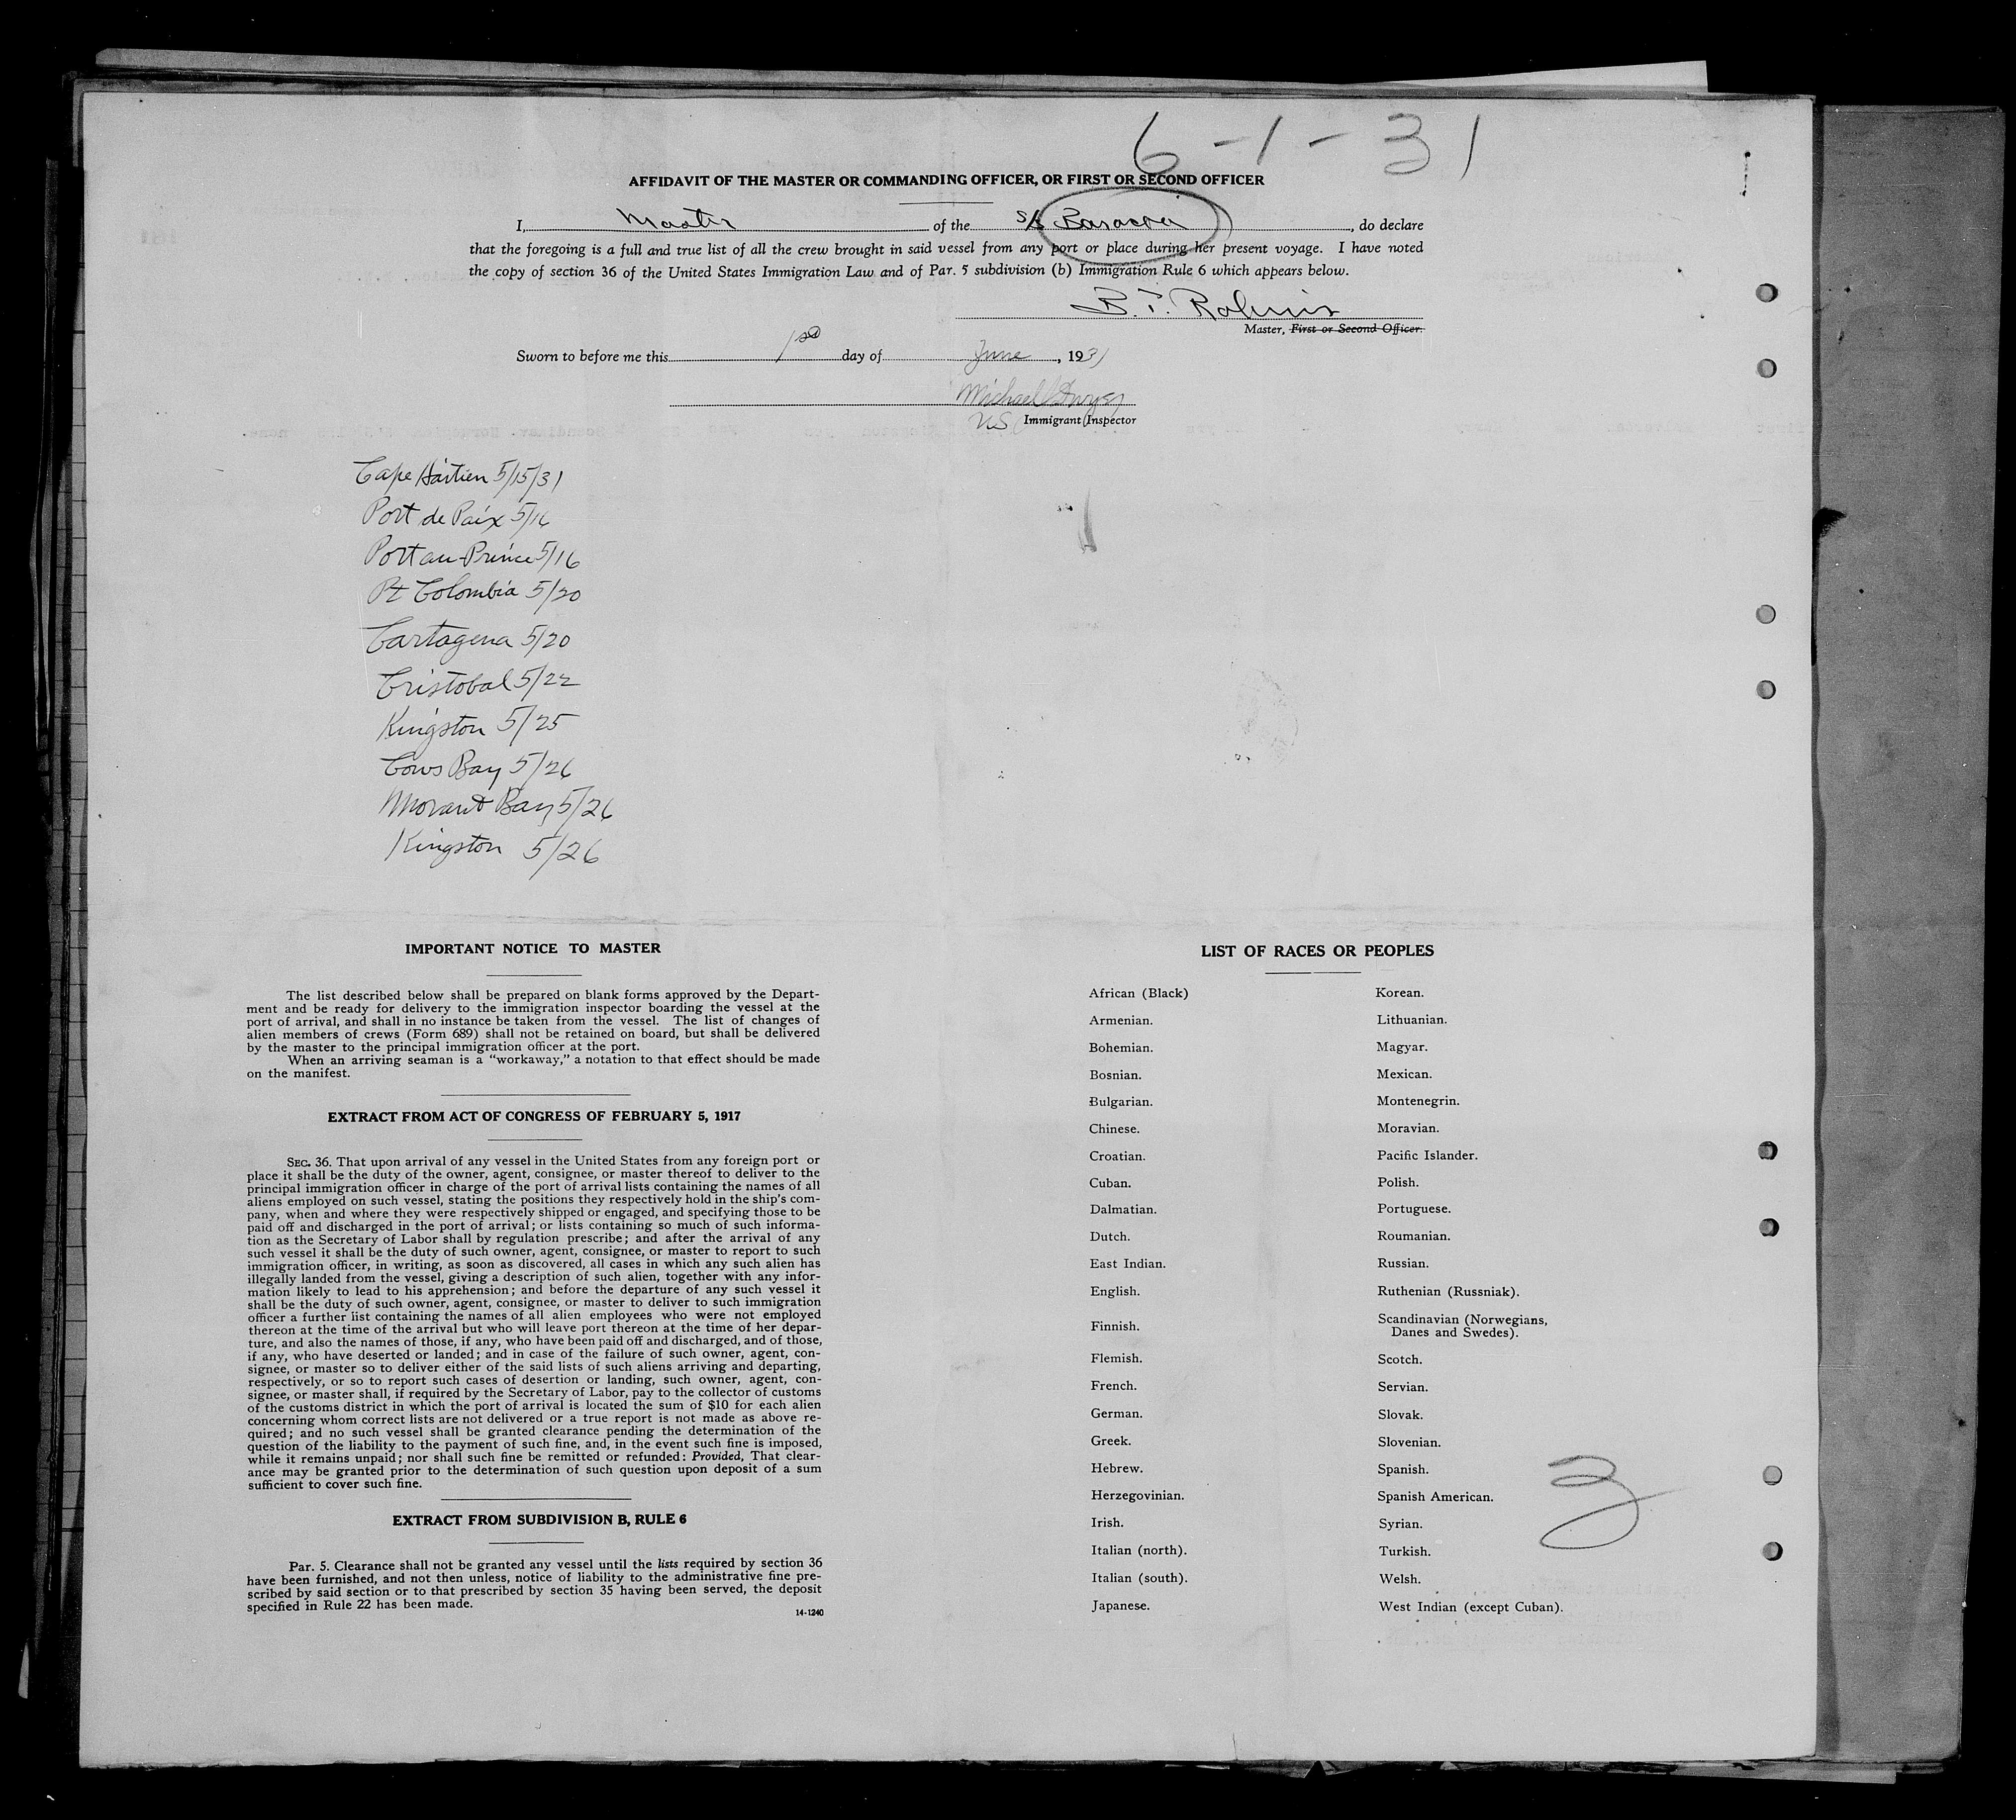 6-1-31
AFFIDAVIT OF THE MASTER OR COMMANDING OFFICER, OR FIRST OR SECOND OFFICER
I, Master of the S/S Baracoa, do declare
that the foregoing is a full and true list of all the crew brought in said vessel from any port or place during her present voyage. I have noted
the copy of section 36 of the United States Immigration Law and of Par. 5 subdivision (b) Immigration Rule 6 which appears below.
B. F.
Master, First or Second Officer.
Sworn to before me this 1st day of June, 1931
Michael Dwyer
US Immigrant Inspector
Cape Haitien 5/15/31
Port de Paix 5/16
Port au Prince 5/16
Pt Colombia 5/20
Cartagena 5/20
Cristobal 5/22
Kingston 5/25
Cows Bay 5/26
Morant Bay 5/26
Kingston 5/26
IMPORTANT NOTICE TO MASTER
The list described below shall be prepared on blank forms approved by the Depart-
ment and be ready for delivery to the immigration inspector boarding the vessel at the
port of arrival, and shall in no instance be taken from the vessel. The list of changes of
alien members of crews (Form 689) shall not be retained on board, but shall be delivered
by the master to the principal immigration officer at the port.
When an arriving seaman is a "workaway," a notation to that effect should be made
on the manifest.
EXTRACT FROM ACT OF CONGRESS OF FEBRUARY 5, 1917
SEC. 36. That upon arrival of any vessel in the United States from any foreign port or
place it shall be the duty of the owner, agent, consignee, or master thereof to deliver to the
principal immigration officer in charge of the port of arrival lists containing the names of all
aliens employed on such vessel, stating the positions they respectively hold in the ship's com-
pany, when and where they were respectively shipped or engaged, and specifying those to be
paid off and discharged in the port of arrival; or lists containing so much of such informa-
tion as the Secretary of Labor shall by regulation prescribe; and after the arrival of any
such vessel it shall be the duty of such owner, agent, consignee, or master to report to such
immigration officer, in writing, as soon as discovered, all cases in which any such alien has
illegally landed from the vessel, giving a description of such alien, together with any infor-
mation likely to lead to his apprehension; and before the departure of any such vessel it
shall be the duty of such owner, agent, consignee, or master to deliver to such immigration
officer a further list containing the names of all alien employees who were not employed
thereon at the time of the arrival but who will leave port thereon at the time of her depar-
ture, and also the names of those, if any, who have been paid off and discharged, and of those,
if any, who have deserted or landed; and in case of the failure of such owner, agent, con-
signee, or master so to deliver either of the said lists of such aliens arriving and departing,
respectively, or so to report such cases of desertion or landing, such owner, agent, con-
signee, or master shall, if required by the Secretary of Labor, pay to the collector of customs
of the customs district in which the port of arrival is located the sum of $10 for each alien
concerning whom correct lists are not delivered or a true report is not made as above re-
quired; and no such vessel shall be granted clearance pending the determination of the
question of the liability to the payment of such fine, and, in the event such fine is imposed,
while it remains unpaid; nor shall such fine be remitted or refunded: Provided, That clear-
ance may be granted prior to the determination of such question upon deposit of a sum
sufficient to cover such fine.
EXTRACT FROM SUBDIVISION B, RULE 6
Par. 5. Clearance shall not be granted any vessel until the lists required by section 36
have been furnished, and not then unless, notice of liability to the administrative fine pre-
scribed by said section or to that prescribed by section 35 having been served, the deposit
specified in Rule 22 has been made.
14-1240
LIST OF RACES OR PEOPLES
African (Black)
Armenian.
Bohemian.
Bosnian.
Bulgarian.
Chinese.
Croatian.
Cuban.
Dalmatian.
Dutch.
East Indian.
English.
Finnish.
Flemish.
French.
German.
Greek.
Hebrew.
Herzegovinian.
Irish.
Italian (north).
Italian (south).
Japanese.
Korean.
Lithuanian.
Magyar.
Mexican.
Montenegrin.
Moravian.
Pacific Islander.
Polish.
Portuguese.
Roumanian.
Russian.
Ruthenian (Russniak).
Scandinavian (Norwegians,
Danes and Swedes).
Scotch.
Servian.
Slovak.
Slovenian.
Spanish.
Spanish American.
Syrian.
Turkish.
Welsh.
West Indian (except Cuban).
3